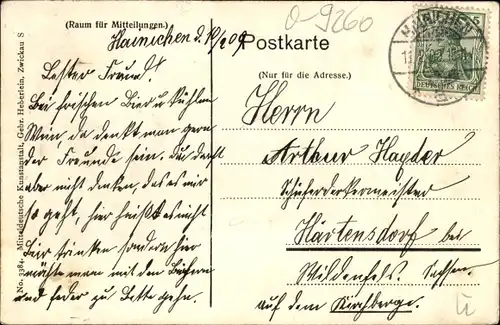 (Raum für Mitteilungen.)
Hainichen d. 10/2 09
Lester Freund!
Bei frischen Bier u. kühlen
Wein, da denkt man gern
der Freunde sein. Du darfst
aber nicht denken, das es mir
so geht, hier heißt es nicht
Bier trinken sondern hier
möchte man mit den Hühnern
und feder zu Bette gehn.
o-9260
Postkarte
(Nur für die Adresse.)
Herrn
Arthur Hayder
Schieferdeckermeister
Härtensdorf bei
Wildenfels. Sachsen.
auf dem Kirchberge.
HAINICHEN
5
DEUTSCHES REICH
No. 3384 Mitteldeutsche Kunstanstalt, Gebr. Heberlein, Zwickau S